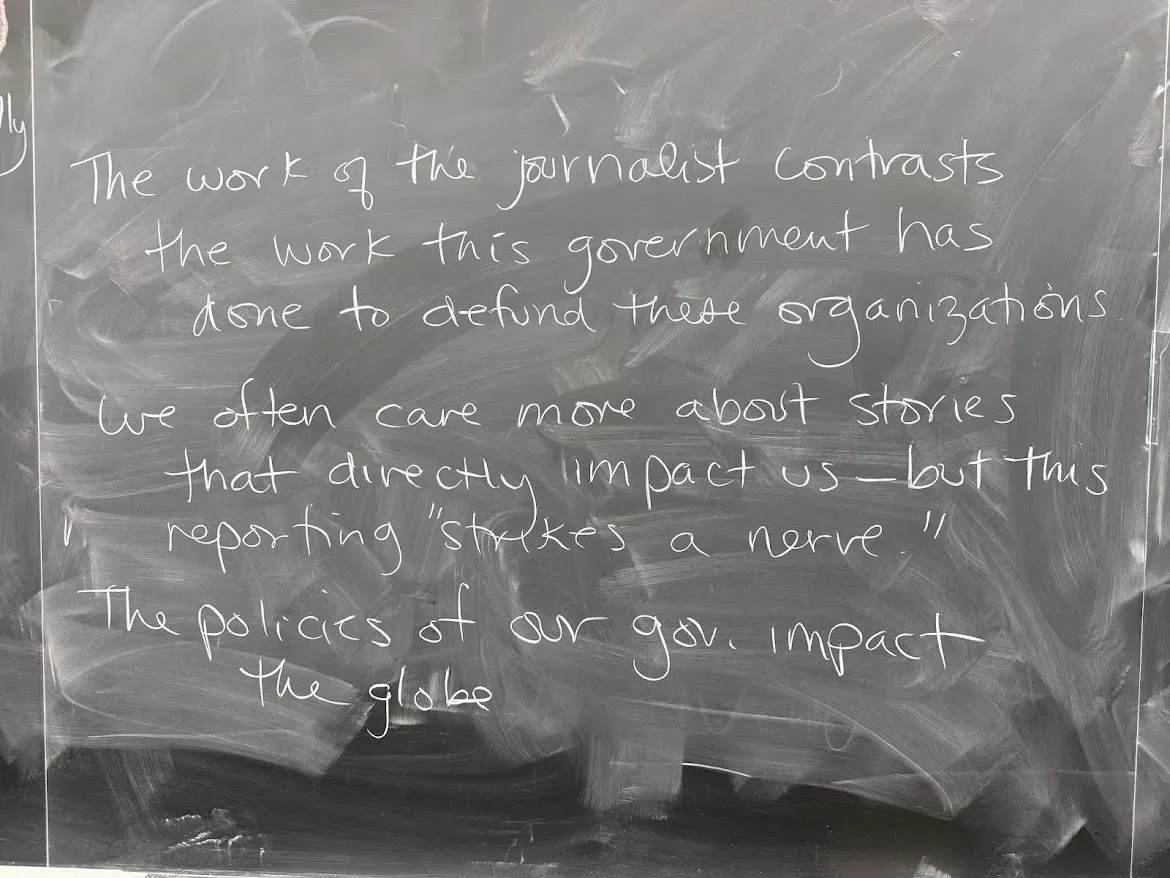 lly
The work of the journalist contrasts
the work this government has
done to defund these organizations.
We often care more about stories
that directly impact us — but this
reporting "strikes a nerve."
The policies of our gov. impact
the globe